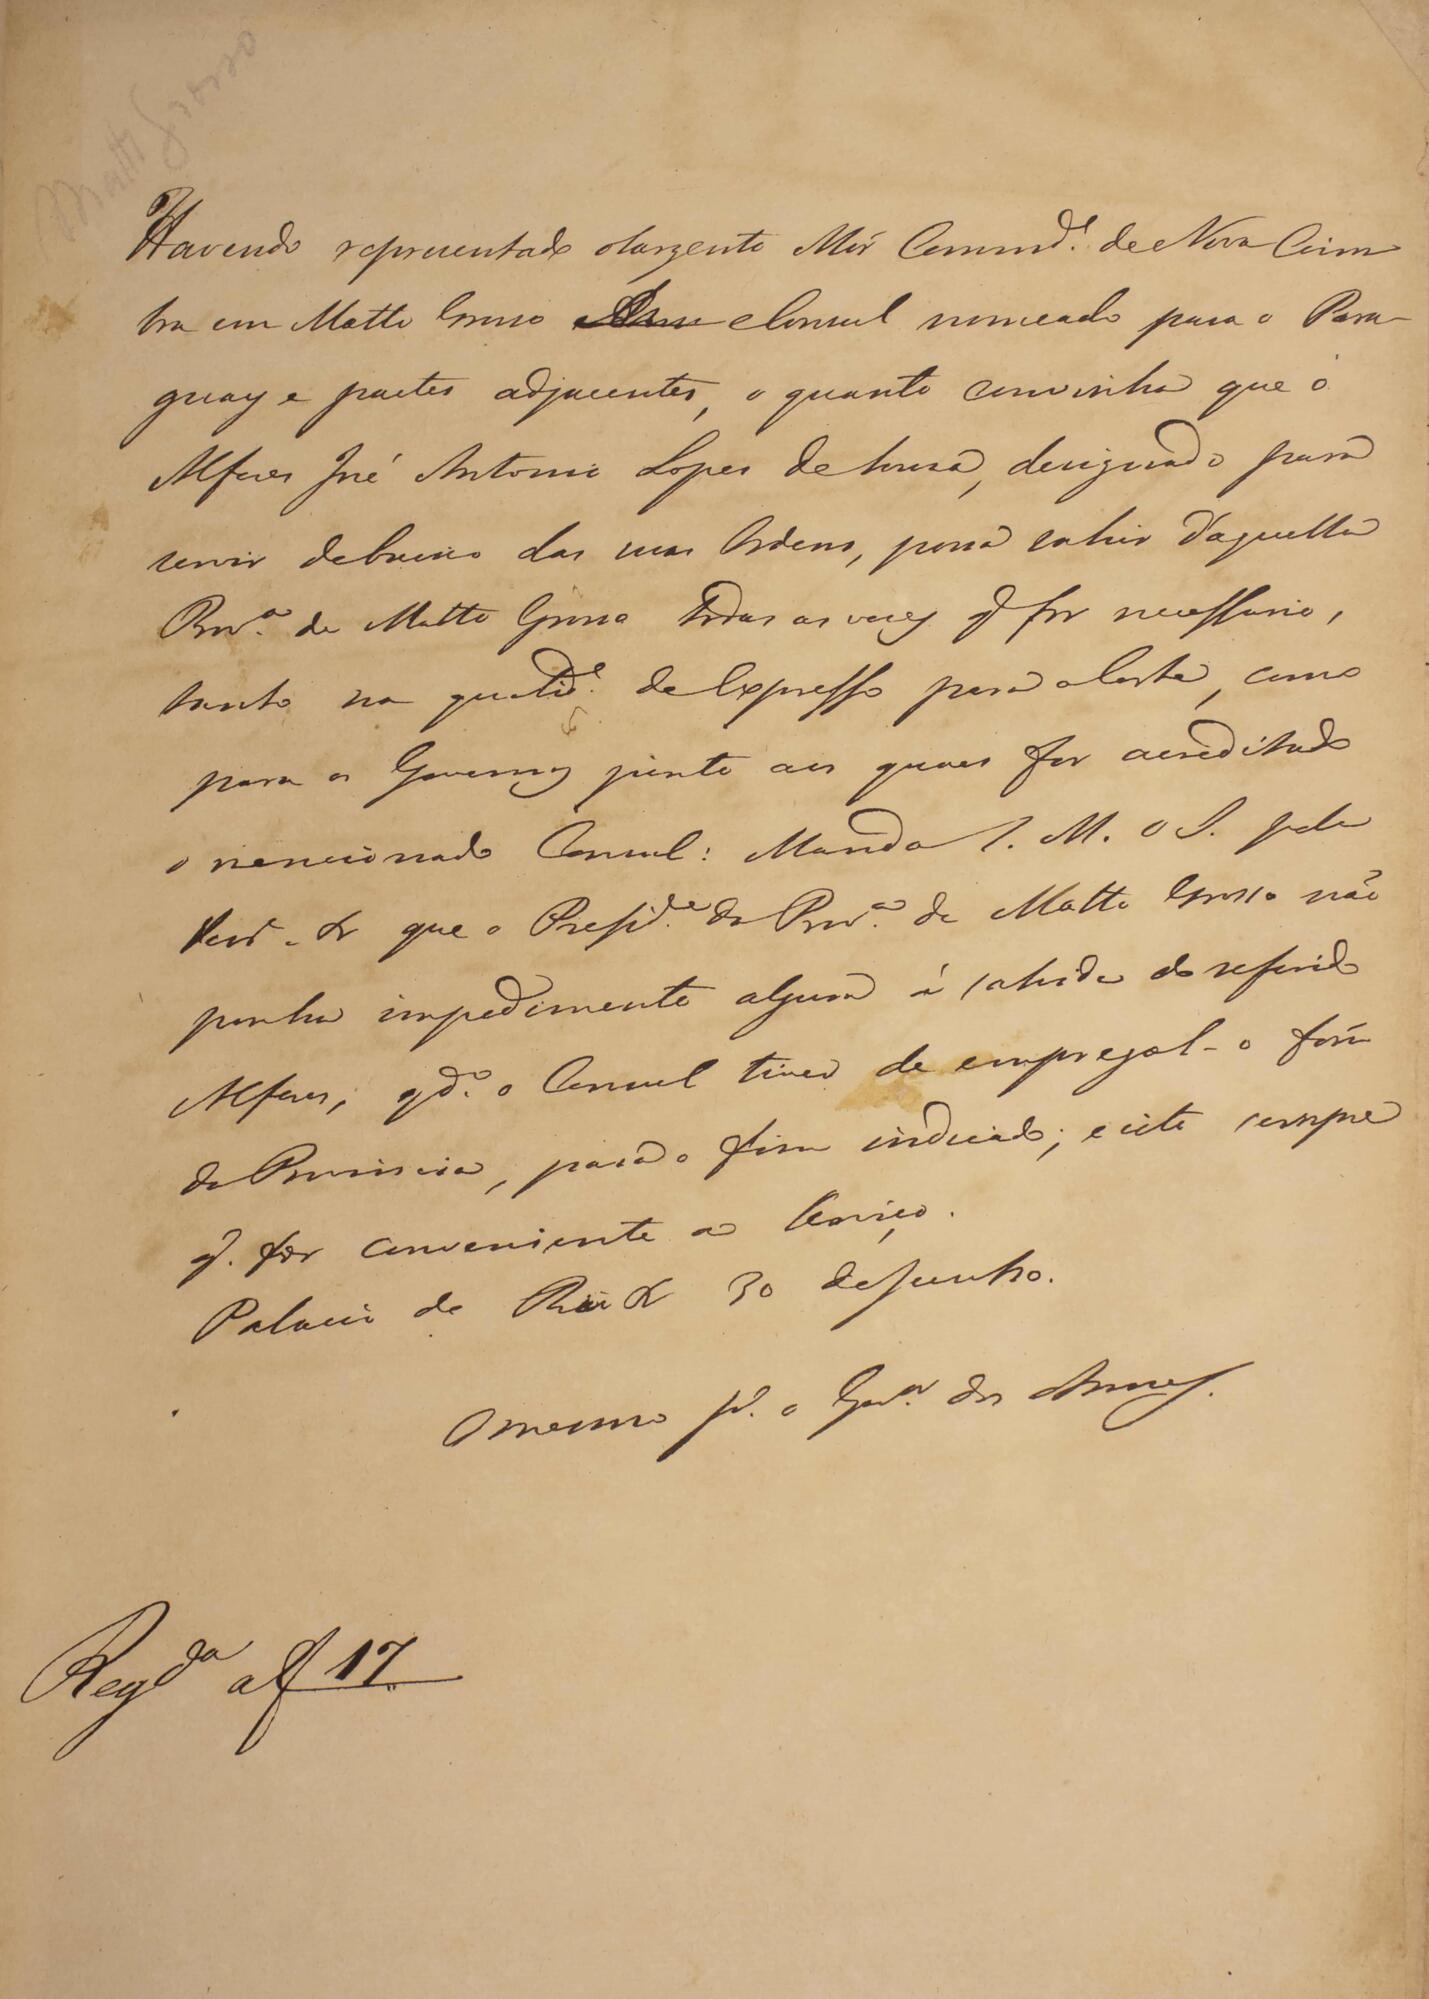 Matto Grosso
Havendo representado o Sargento Mór Command.e de Nova Coim
bra em Matto Grosso e Consul nomeado para o Para-
guay e partes adjacentes, o quanto convinha que o
Alferes José Antonio Lopes de Sousa, designado para
servir debaixo das suas Ordens, possa sahir d'aquella
Prov.a de Matto Grosso todas as vezes q for necessario,
tanto na qualid.e de Expresso para a Corte, como
para os Governos junto aos quaes for acreditado
o mencionado Consul: Manda S. M. O I. pela
que o Presid.e da Prov.a de Matto Grosso não
ponha impedimento algum á sahida do referido
Alferes, qd.o o Consul tiver de empregal-o fóra
da Provincia, para o fim indicado; e isto sempre
q. for conveniente ao Serviço.
Palacio do Rio de 30 de Junho.
O mesmo p.a o Gov.or das Armas.
Reg.da a f 17